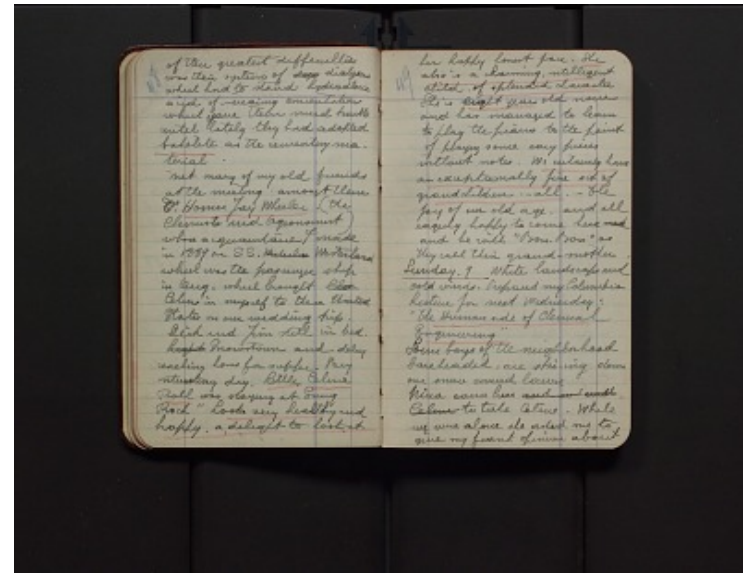 of their greatest difficulties
was their system of dialyzers
which had to stand hydrochloric
acid of varying concentration
which gave them much trouble
until lately they had adopted
bakelite as the cementing ma-
terial.
met many of my old friends
at the meeting amongst them
Dr. Homer Jay Wheeler (the
Chemist and agronomist)
whose acquaintance I made
in 1889 on S.S. Westerland
which was the passenger ship
in Aug. which brought
Celine in myself to these United
States on our wedding trip.
Dick and Jim still in bed.
Snowstorm and delay
reaching home for supper. Very
interesting day. Little Celine
Roll was staying at Snug
Rock" Looks very healthy and
happy. a delight to look at
her happy honest face. She
also is a charming, intelligent
child, of splendid character
She is eight years old
and has managed to learn
to play the piano to the point
of playing some easy pieces
without notes. We certainly have
an exceptionally fine set of
grandchildren - all - the
joy of our old age. and all
equally happy to come here
and be with "Bon Bon" as
they call their grand-mother.
Sunday. 9 White landscape and
cold winds. Prepared my Columbia
lecture for next Wednesday:
"The Human side of Chemical
Engineering"
Some boys of the neighborhood
bareheaded, are skiing down
our snow covered lawns
Nina came here
Celine to take Celine. While
we were alone she asked me to
give my frank opinion about